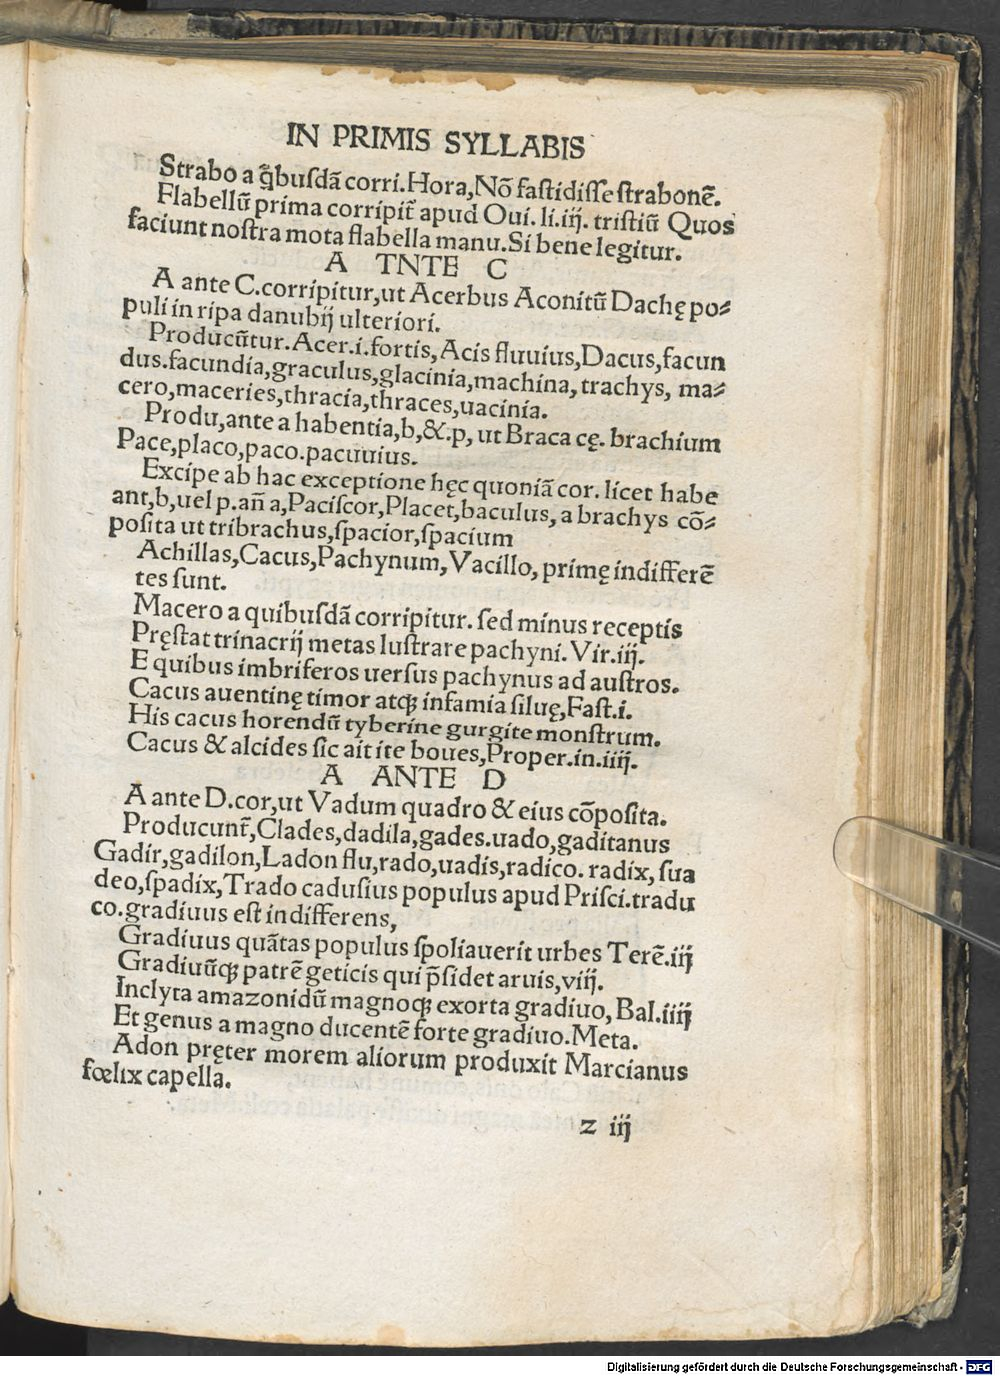 IN PRIMIS SYLLABIS
Strabo a q̃busdã corri.Hora,Nõ fastidisse strabonẽ.
Flabellũ prima corripit̃ apud Oui. li.iij. tristiũ Quos
faciunt nostra mota flabella manu.Si bene legitur.
A TNTE C
A ante C.corripitur,ut Acerbus Aconitũ Dachę po⸗
puli in ripa danubij ulteriori.
Producũtur.Acer.i.fortis,Acis fluuius,Dacus,facun
dus.facundia,graculus,glacinia,machina,trachys, ma⸗
cero,maceries,thracia,thraces,uacinia.
Produ,ante a habentia,b,&.p, ut Braca cę. brachium
Pace,placo,paco.pacuuius.
Excipe ab hac exceptione hęc quoniã cor. licet habe
ant,b,uel p.añ a,Paciscor,Placet,baculus, a brachys cõ⸗
posita ut tribrachus,spacior,spacium
Achillas,Cacus,Pachynum,Vacillo, primę indifferẽ
tes sunt.
Macero a quibusdã corripitur. sed minus receptis
Pręstat trinacrij metas lustrare pachyni. Vir.iij.
E quibus imbriferos uersus pachynus ad austros.
Cacus auentinę timor atq; infamia siluę,Fast.i.
His cacus horendũ tyberine gurgite monstrum.
Cacus & alcides sic ait ite boues,Proper.in.iiij.
A ANTE D
A ante D.cor,ut Vadum quadro & eius cõposita.
Producunt̃,Clades,dadila,gades.uado,gaditanus
Gadir,gadilon,Ladon flu,rado,uadis,radico. radix, sua
deo,spadix,Trado cadusius populus apud Prisci.tradu
co.gradiuus est indifferens,
Gradiuus quãtas populus spoliauerit urbes Terẽ.iij
Gradiuũq; patrẽ geticis qui p̃sidet aruis,viij.
Inclyta amazonidũ magnoq; exorta gradiuo, Bal.iiij
Et genus a magno ducentẽ forte gradiuo.Meta.
Adon pręter morem aliorum produxit Marcianus
fœlix capella.
z iij
Digitalisierung gefördert durch die Deutsche Forschungsgemeinschaft - DFG